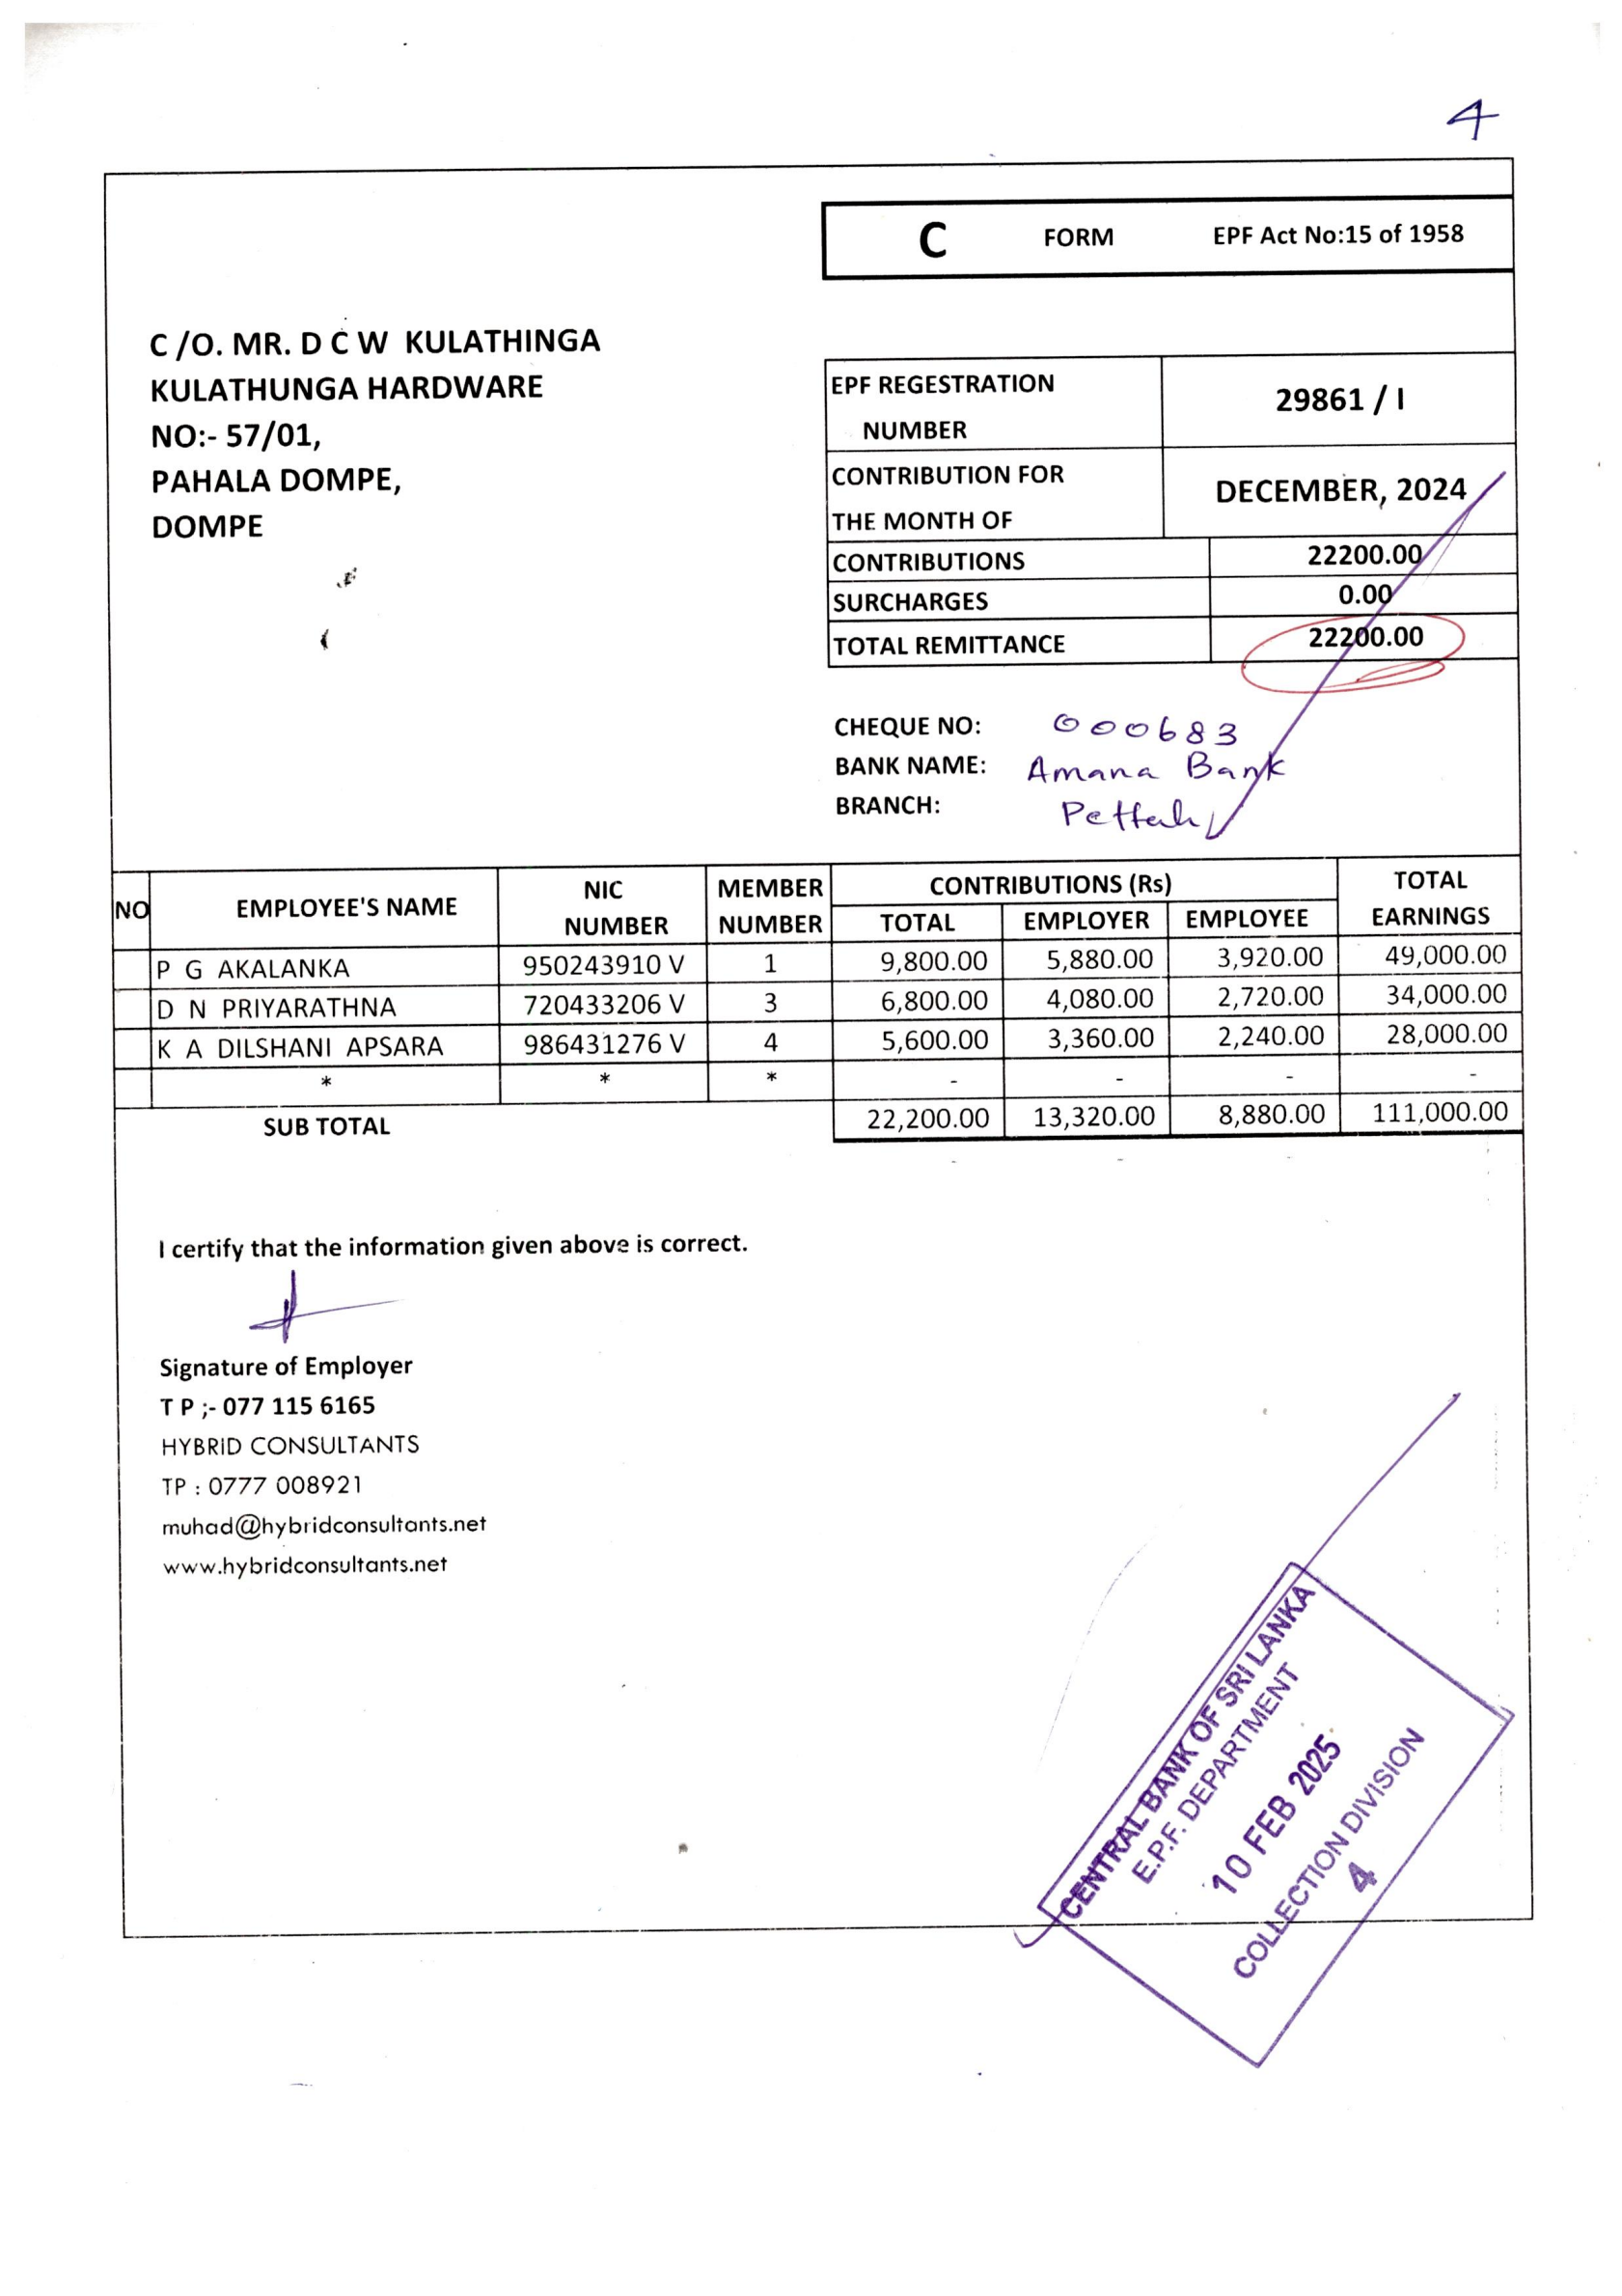 4
C FORM EPF Act No:15 of 1958
C /O. MR. D C W KULATHINGA
KULATHUNGA HARDWARE
NO:- 57/01,
PAHALA DOMPE,
DOMPE
EPF REGESTRATION NUMBER 29861 / I
CONTRIBUTION FOR THE MONTH OF DECEMBER, 2024
CONTRIBUTIONS 22200.00
SURCHARGES 0.00
TOTAL REMITTANCE 22200.00
CHEQUE NO: 000683
BANK NAME: Amana Bank
BRANCH: Pettah
NO EMPLOYEE'S NAME NIC NUMBER MEMBER NUMBER CONTRIBUTIONS (Rs) TOTAL EARNINGS
TOTAL EMPLOYER EMPLOYEE
P G AKALANKA 950243910 V 1 9,800.00 5,880.00 3,920.00 49,000.00
D N PRIYARATHNA 720433206 V 3 6,800.00 4,080.00 2,720.00 34,000.00
K A DILSHANI APSARA 986431276 V 4 5,600.00 3,360.00 2,240.00 28,000.00
* * * - - - -
SUB TOTAL 22,200.00 13,320.00 8,880.00 111,000.00
- -
I certify that the information given above is correct.
Signature of Employer
T P ;- 077 115 6165
HYBRID CONSULTANTS
TP : 0777 008921
muhad@hybridconsultants.net
www.hybridconsultants.net
CENTRAL BANK OF SRI LANKA
E.P.F. DEPARTMENT
10 FEB 2025
COLLECTION DIVISION
4